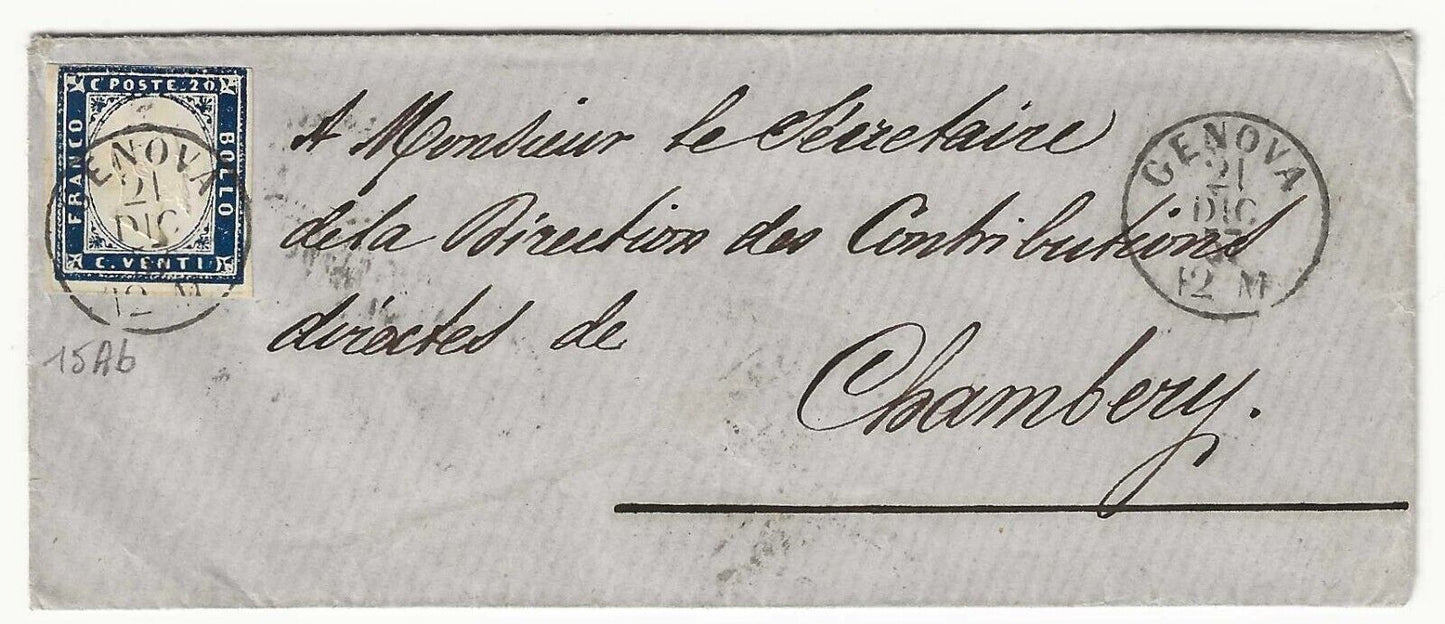 C. POSTE. 20
FRANCO
BOLLO
C. VENTI
GENOVA
21
DIC
12 M
A Monsieur le Sécretaire
de la Direction des Contributions
directes de
Chambery.
GENOVA
21
DIC
57
12 M
15Ab